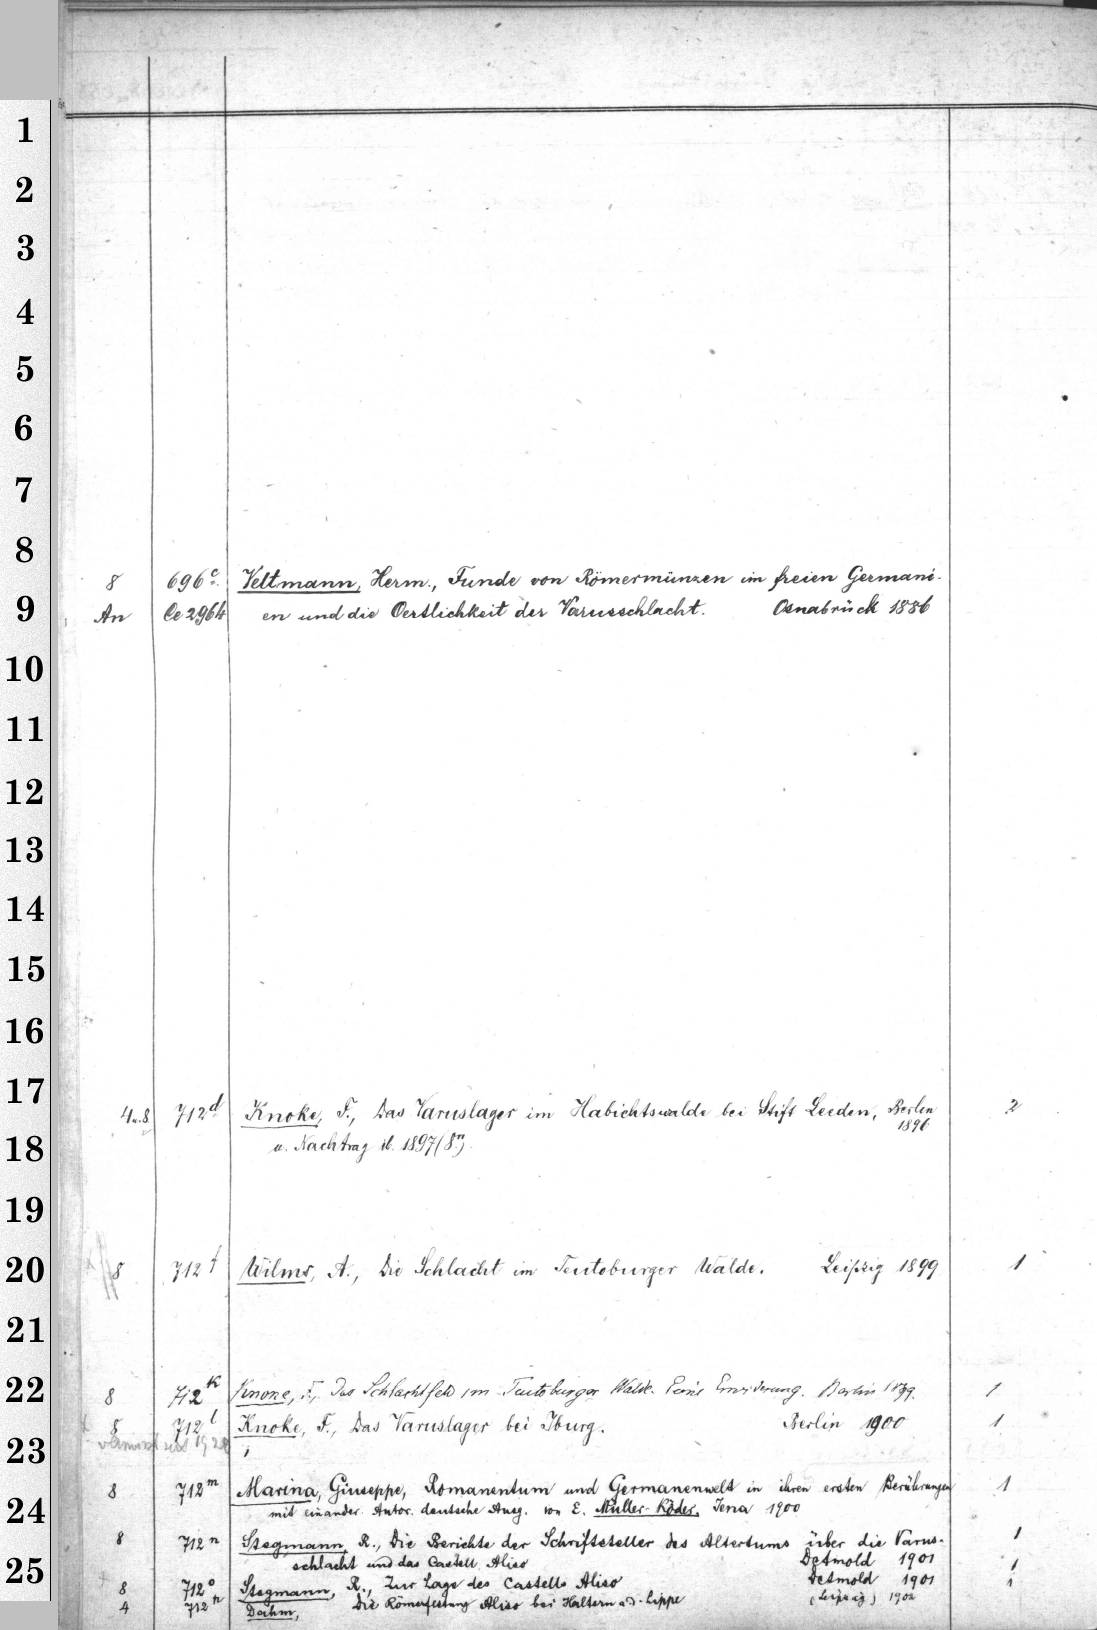 1
2
3
4
5
6
7
8
8 696c. Veltmann, Herm., Funde von Römermünzen im freien Germani-
9
An Ce 2964 en und die Oertlichkeit der Varusschlacht. Osnabrück 1886
10
11
12
13
14
15
16
17
4u.8 712d Knoke, F., Das Varuslager im Habichtswalde bei Stift Leeden, Berlin 2
1896
18
u. Nachtrag ib. 1897 (8°).
19
20
8 712f Wilms, A., Die Schlacht im Teutoburger Walde. Leipzig 1899 1
21
22
8 712k Knoke, F., Das Schlachtfeld im Teutoburger Walde. Eine Erwiderung. Berlin 1899. 1
8 712l Knoke, F., Das Varuslager bei Iburg. Berlin 1900 1
23
8 712m Marina, Giuseppe, Romanentum und Germanenwelt in ihren ersten Berührungen 1
24
mit einander. Autor. deutsche Ausg. von E. Müller-Röder. Jena 1900
8 712n Stegmann, R., Die Berichte der Schriftsteller des Altertums über die Varus- 1
schlacht und das Castell Aliso Detmold 1901
25
8 712o Stegmann, R., Zur Lage des Castells Aliso Detmold 1901 1
4 712p Dahm, Die Römerfestung Aliso bei Haltern a. d. Lippe (Leipzig) 1902 1